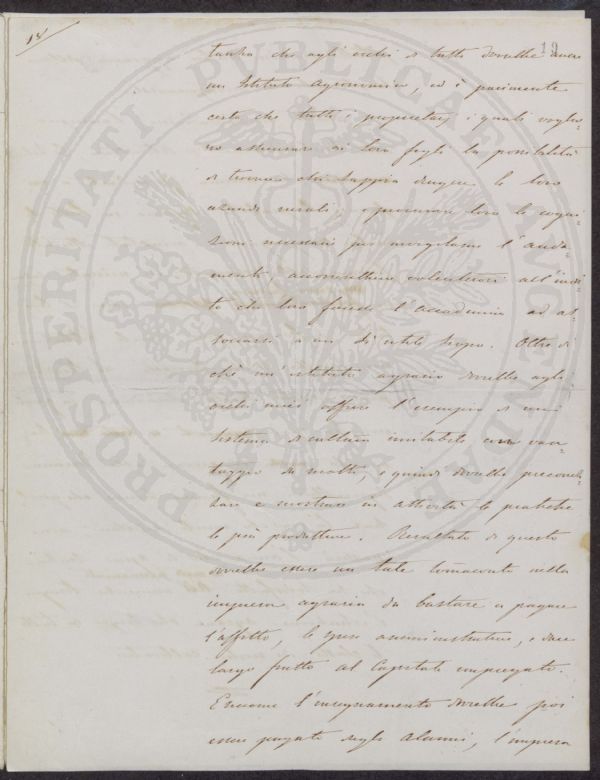 18
19
PROSPERITATI PVBLICAE AVGENDAE
tanza che agli occhi di tutti dovrebbe avere
un Istituto Agronomico, ed è parimente
certo che tutti i proprietarj i quali voglio-
no assicurare ai loro figli la possibilità
di trovare chi sappia dirigere le loro
aziende rurali, e procurare loro le cogni-
zioni necessarie per invigilarne l'anda-
mento acconsentiranno volentieri all'invi-
to che loro faccia l'accademia ad as-
sociarsi a un sì utile scopo. Oltre di
chè un'istituto agrario dovrebbe agli
occhi miei offrire l'esempio di un
sistema di cultura imitabile con van-
taggio da molti, e quindi dovrebbe preconiz-
zare e mostrare in attività le pratiche
le più produttive. Resultato di questo
dovrebbe essere un tale tornaconto nella
impresa agraria da bastare a pagare
l'affitto, le spese amministrative, e dare
largo frutto al Capitale impiegato.
E siccome l'insegnamento dovrebbe poi
esser pagato dagli Alunni, l'impresa